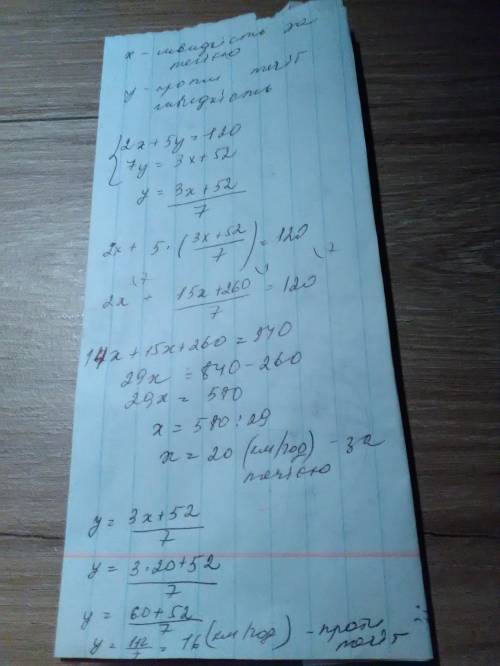 x - швидкість за
течією
y - проти течії
швидкість
{2x + 5y = 120
7y = 3x + 52
y = \frac{3x + 52}{7}
2x + 5 · (\frac{3x + 52}{7}) = 120
2x^{\7} + \frac{15x + 260}{7}^{\1} = 120^{\7}
14x + 15x + 260 = 840
29x = 840 - 260
29x = 580
x = 580 : 29
x = 20 (км/год) - за
течією
y = \frac{3x + 52}{7}
y = \frac{3 · 20 + 52}{7}
y = \frac{60 + 52}{7}
y = \frac{112}{7} = 16 (км/год) - проти
течії